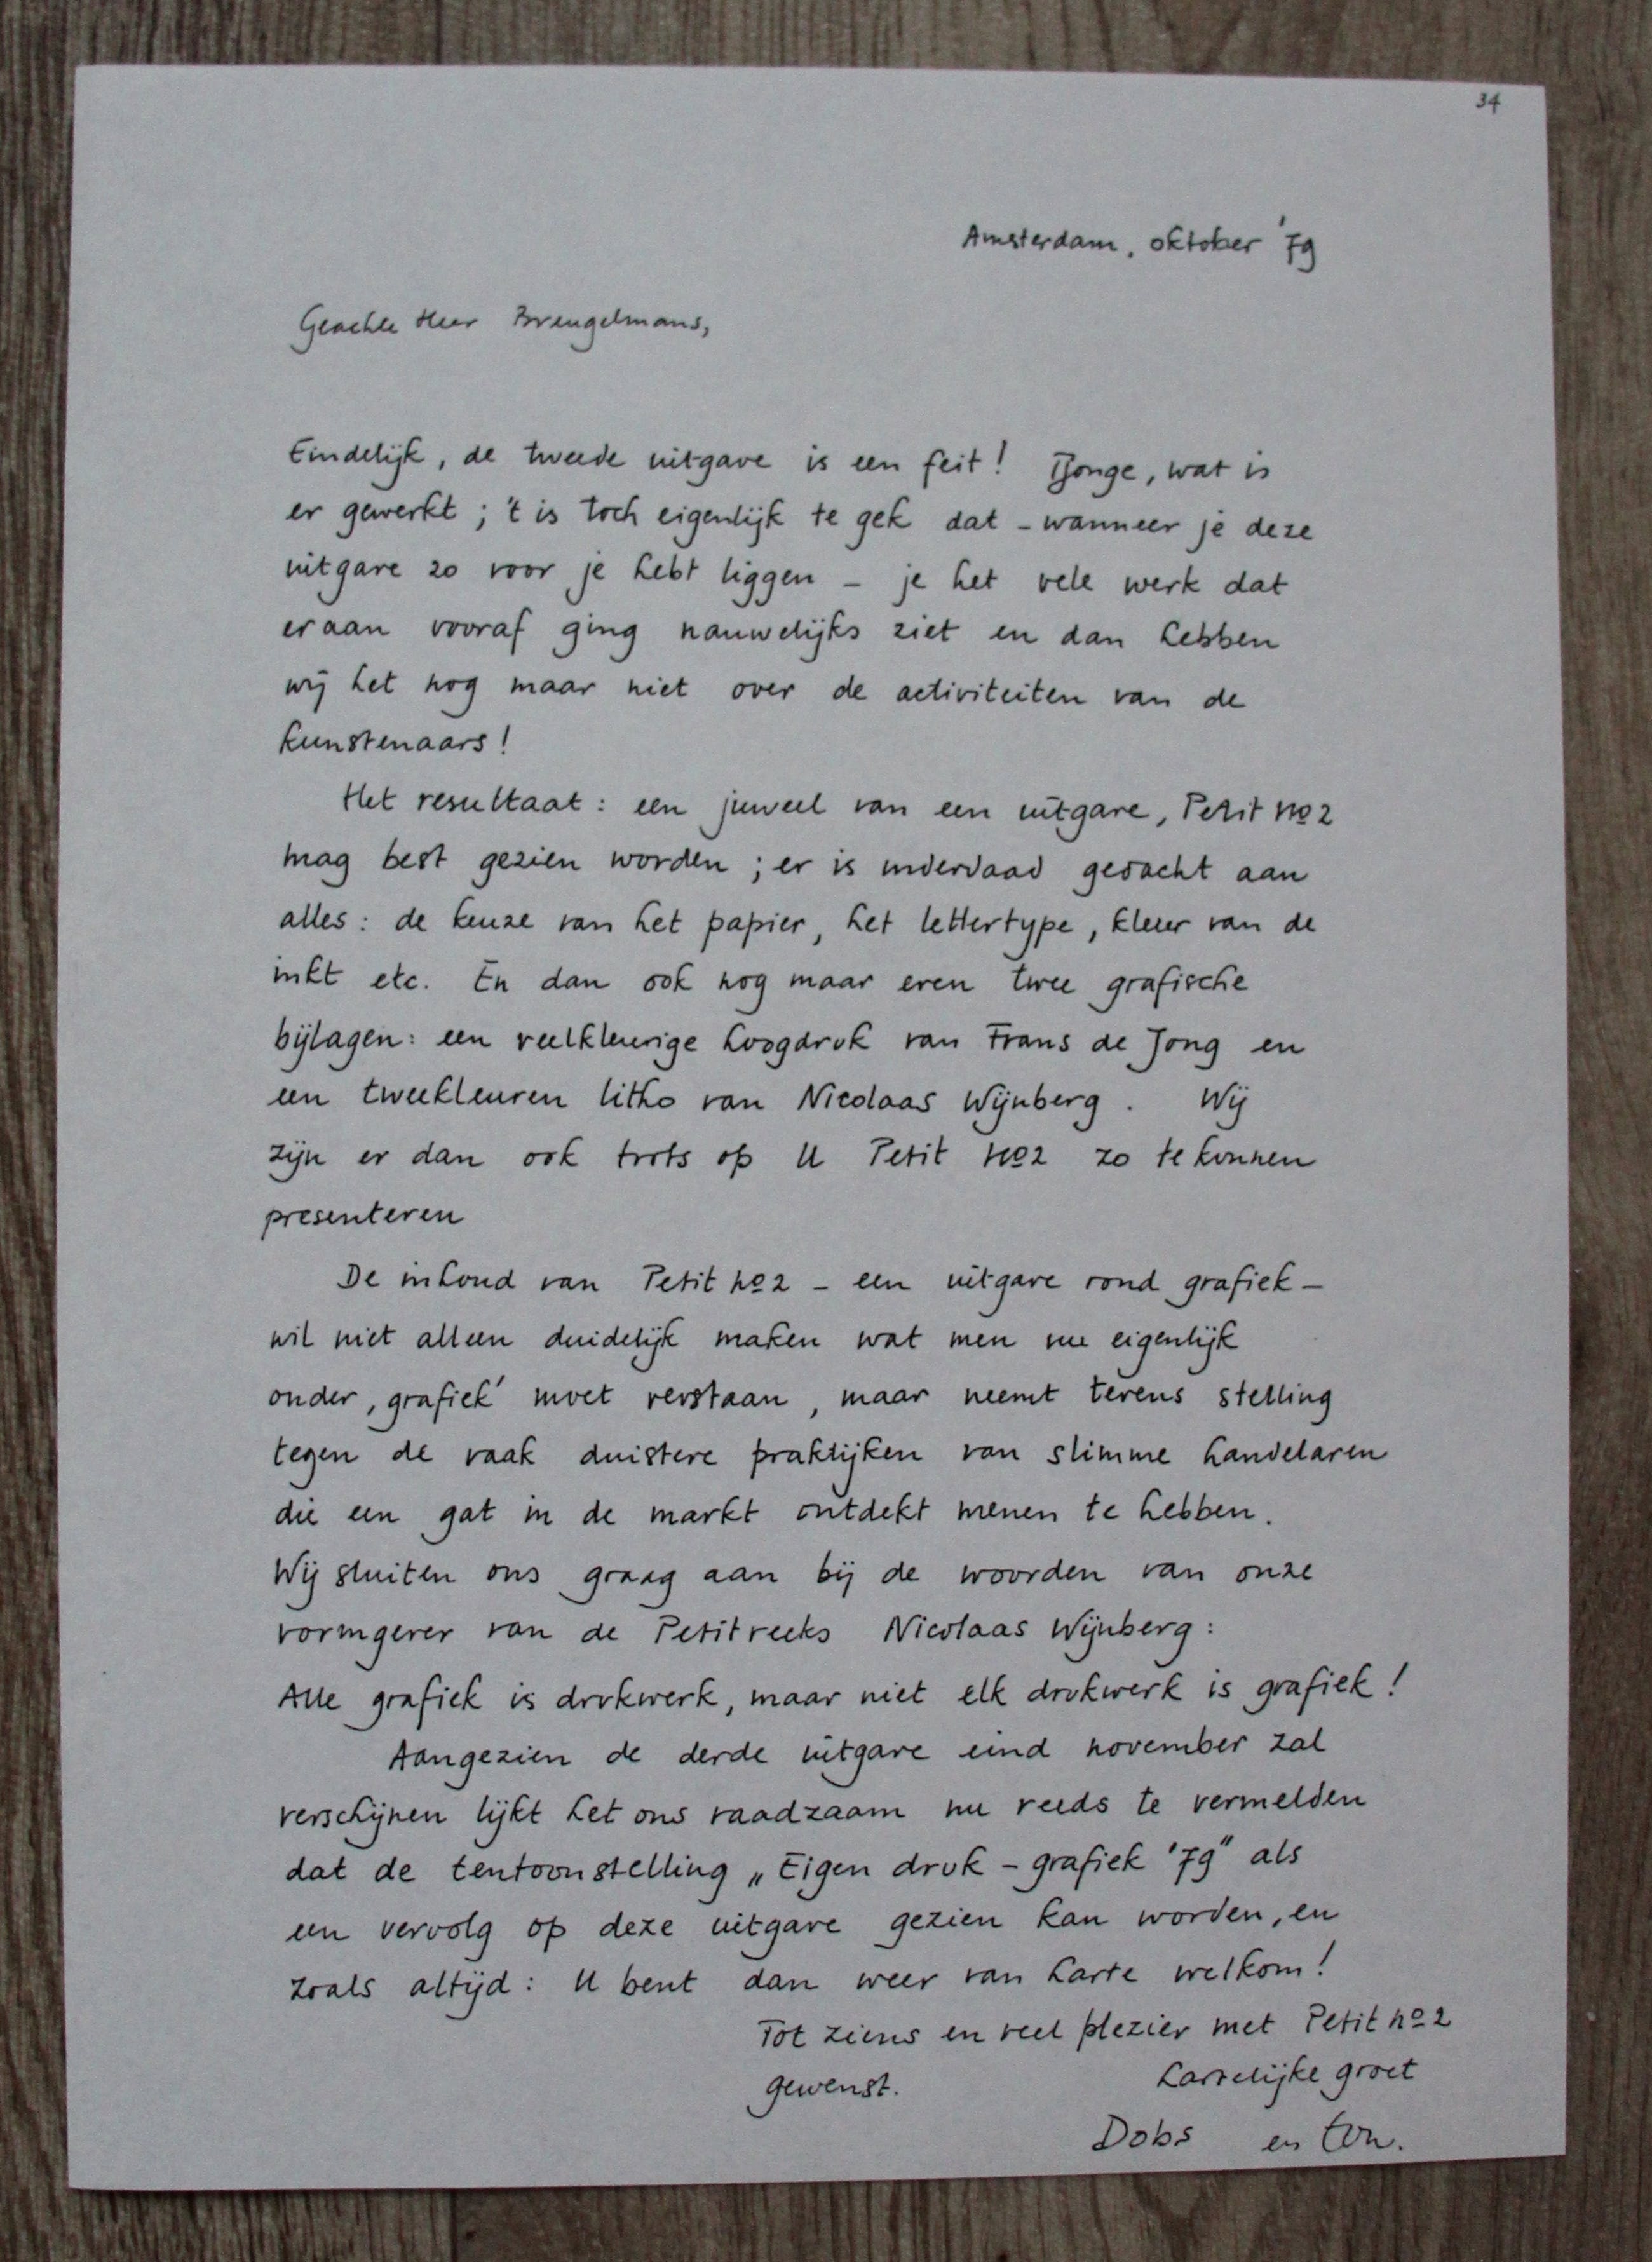 34
Amsterdam, oktober '79
Geachte Heer Breugelmans,
Eindelijk, de tweede uitgave is een feit! Tjonge, wat is
er gewerkt; 't is toch eigenlijk te gek dat - wanneer je deze
uitgave zo voor je hebt liggen - je het vele werk dat
eraan vooraf ging nauwelijks ziet en dan hebben
wij het nog maar niet over de activiteiten van de
kunstenaars!
Het resultaat: een juweel van een uitgave, Petit no 2
mag best gezien worden; er is inderdaad gedacht aan
alles: de keuze van het papier, het lettertype, kleur van de
inkt etc. En dan ook nog maar even twee grafische
bijlagen: een veelkleurige hoogdruk van Frans de Jong en
een tweekleuren litho van Nicolaas Wijnberg. Wij
zijn er dan ook trots op U Petit no 2 zo te kunnen
presenteren
De inhoud van Petit no 2 - een uitgave rond grafiek -
wil niet alleen duidelijk maken wat men nu eigenlijk
onder ,grafiek' moet verstaan, maar neemt tevens stelling
tegen de vaak duistere praktijken van slimme handelaren
die een gat in de markt ontdekt menen te hebben.
Wij sluiten ons graag aan bij de woorden van onze
vormgever van de Petitreeks Nicolaas Wijnberg:
Alle grafiek is drukwerk, maar niet elk drukwerk is grafiek!
Aangezien de derde uitgave eind november zal
verschijnen lijkt het ons raadzaam nu reeds te vermelden
dat de tentoonstelling „Eigen druk - grafiek '79" als
een vervolg op deze uitgave gezien kan worden, en
zoals altijd: U bent dan weer van harte welkom!
Tot ziens en veel plezier met Petit no 2
gewenst.
Hartelijke groet
Dobs en Ton.